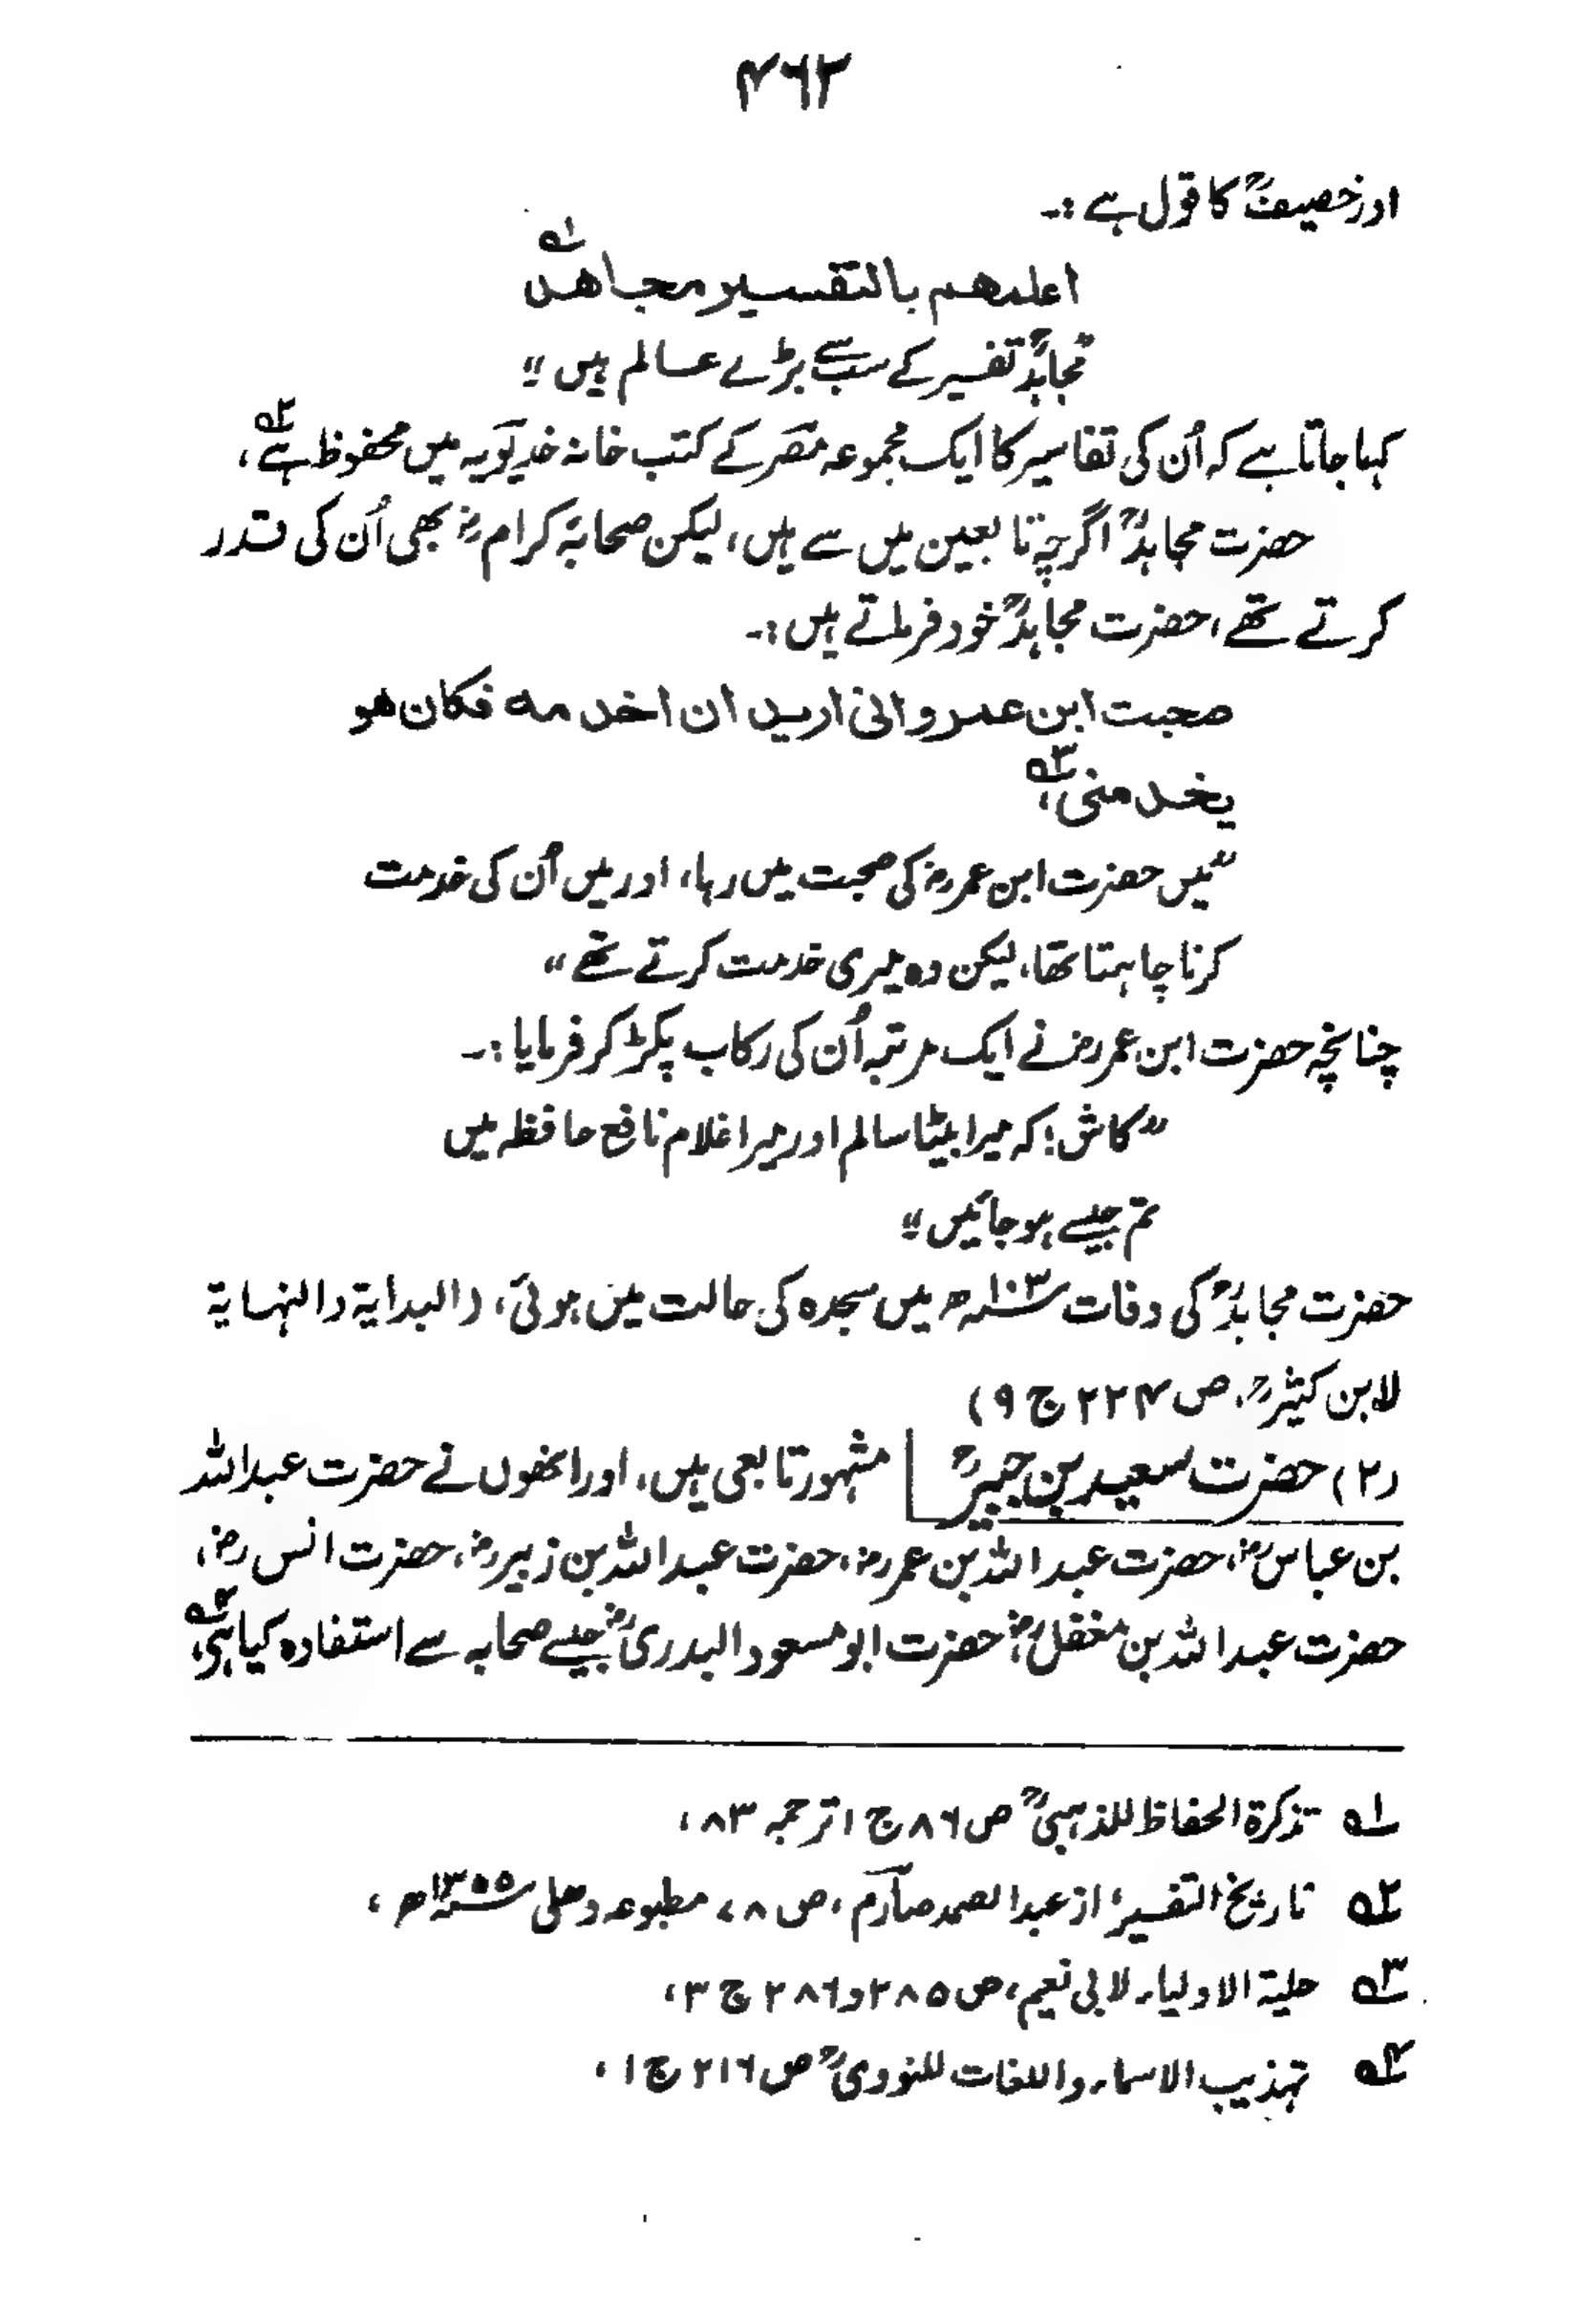 ۴۶۲
اور خصیفؒ کا قول ہے :۔
اعلمهم بالتفسير مجاهد ۱؎
"مجاہدؒ تفسیر کے سب سے بڑے عالم ہیں"
کہا جاتا ہے کہ اُن کی تفاسیر کا ایک مجموعہ مصر کے کتب خانہ خدیویہ میں محفوظ ہے ۲؎،
حضرت مجاہدؒ اگرچہ تابعین میں سے ہیں، لیکن صحابۂ کرامؓ بھی اُن کی قدر
کرتے تھے، حضرت مجاہدؒ خود فرماتے ہیں :۔
صحبت ابن عمر وانی ارید ان اخدمه فکان هو
یخدمنی ۳؎،
"میں حضرت ابن عمرؓ کی صحبت میں رہا، اور میں اُن کی خدمت
کرنا چاہتا تھا، لیکن وہ میری خدمت کرتے تھے"
چنانچہ حضرت ابن عمرؓ نے ایک مرتبہ اُن کی رکاب پکڑ کر فرمایا :۔
"کاش! کہ میرا بیٹا سالم اور میرا غلام نافع حافظہ میں
تم جیسے ہو جائیں"
حضرت مجاہدؒ کی وفات ۱۰۳ھ میں سجدہ کی حالت میں ہوئی، (البدایۃ والنہایۃ
لابن کثیرؒ، ص ۲۲۴ ج ۹)
(۲) حضرت سعید بن جبیرؒ مشہور تابعی ہیں، اور انھوں نے حضرت عبداللہ
بن عباسؓ، حضرت عبداللہ بن عمرؓ، حضرت عبداللہ بن زبیرؓ، حضرت انسؓ،
حضرت عبداللہ بن مغفلؓ، حضرت ابو مسعود البدریؓ جیسے صحابہ سے استفادہ کیا ہی ۴؎،
۱؎ تذکرۃ الحفاظ للذہبیؒ ص ۸۶ ج ۱ ترجمہ ۸۳،
۲؎ تاریخ التفسیر، از عبدالصمد صارم، ص ۷۸، مطبوعہ دہلی ۱۳۵۵ھ،
۳؎ حلیۃ الاولیاء لابی نعیم، ص ۲۸۵ و ۲۸۶ ج ۳،
۴؎ تہذیب الاسماء واللغات للنوویؒ ص ۲۱۶ ج ۱،